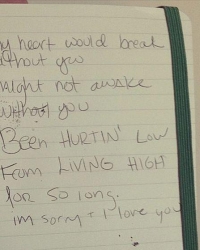 y heart would break
without you
might not awake
without you
Been HURTIN' Low
From LIVING HIGH
for so long.
im sorry + I love you